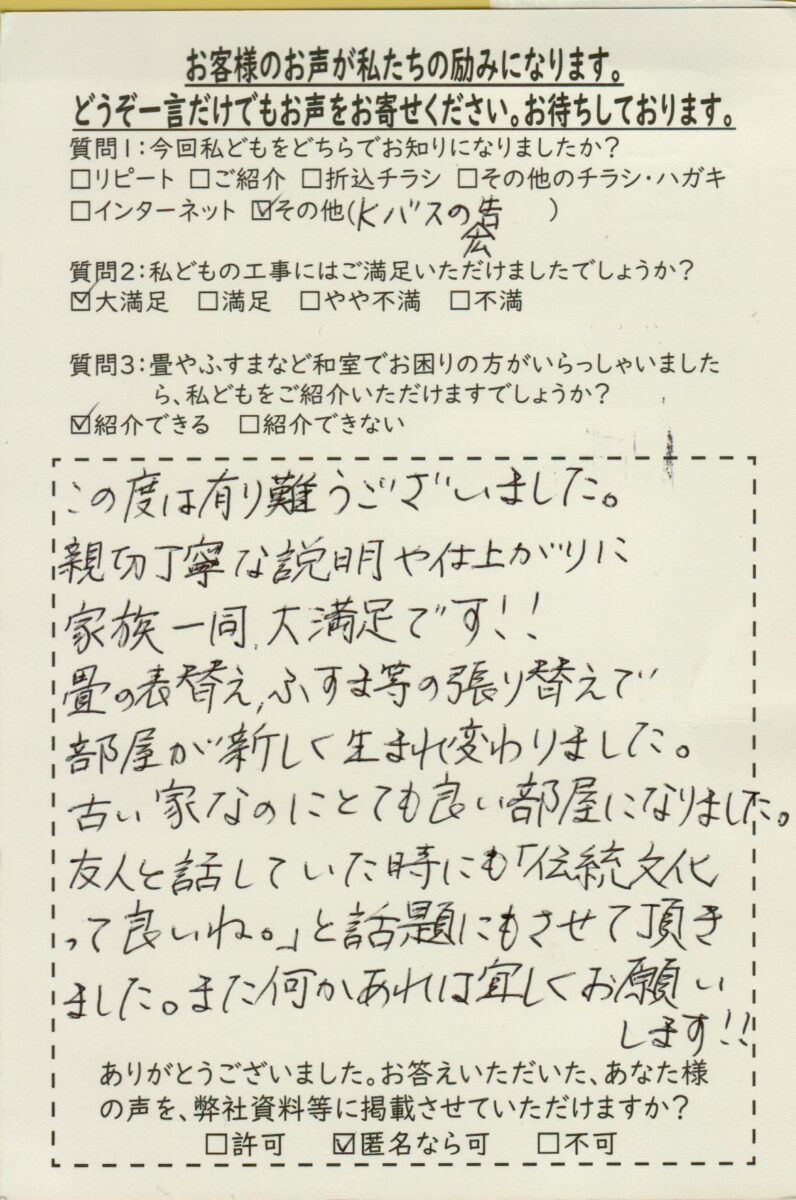 お客様のお声が私たちの励みになります。
どうぞ一言だけでもお声をお寄せください。お待ちしております。
質問1:今回私どもをどちらでお知りになりましたか?
□リピート □ご紹介 □折込チラシ □その他のチラシ・ハガキ
□インターネット ☑その他(Kバスの告 )
質問2:私どもの工事にはご満足いただけましたでしょうか?
☑大満足 □満足 □やや不満 □不満
質問3:畳やふすまなど和室でお困りの方がいらっしゃいました
ら、私どもをご紹介いただけますでしょうか?
☑紹介できる □紹介できない
この度は有り難うございました。
親切丁寧な説明や仕上がりに
家族一同、大満足です!!
畳の表替え、ふすま等の張り替えで
部屋が新しく生まれ変わりました。
古い家なのにとても良い部屋になりました。
友人と話していた時にも「伝統文化
って良いね。」と話題にもさせて頂き
ました。また何かあれば宜しくお願い
します!!
ありがとうございました。お答えいただいた、あなた様
の声を、弊社資料等に掲載させていただけますか?
□許可 ☑匿名なら可 □不可